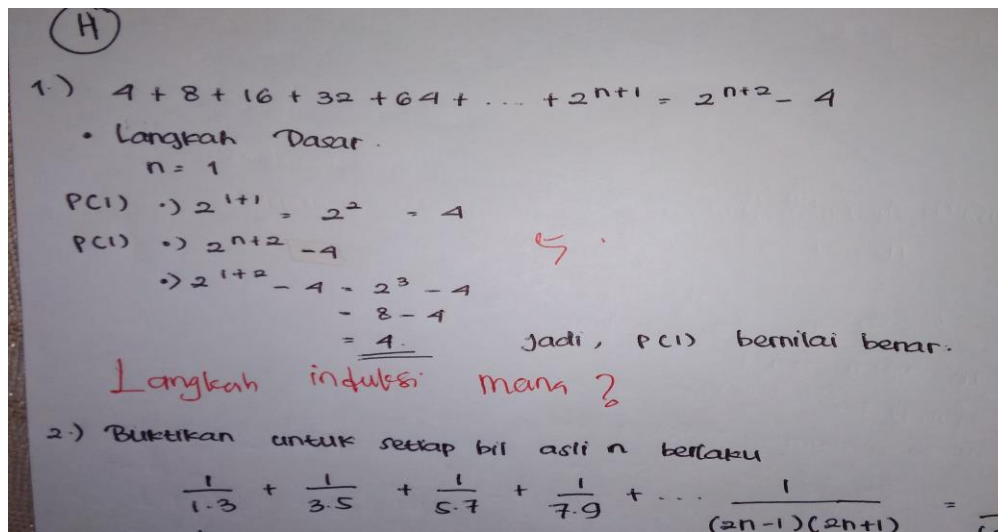 H
1.) 4 + 8 + 16 + 32 + 64 + .... + 2^{n+1} = 2^{n+2} - 4
• Langkah Dasar.
n = 1
P(1) •) 2^{1+1} = 2^2 = 4
P(1) •) 2^{n+2} - 4
5
•> 2^{1+2} - 4 = 2^3 - 4
= 8 - 4
= 4. Jadi, P(1) bernilai benar.
Langkah induksi mana?
2.) Buktikan untuk setiap bil asli n berlaku
1/(1.3) + 1/(3.5) + 1/(5.7) + 1/(7.9) + ... 1/((2n-1)(2n+1)) =